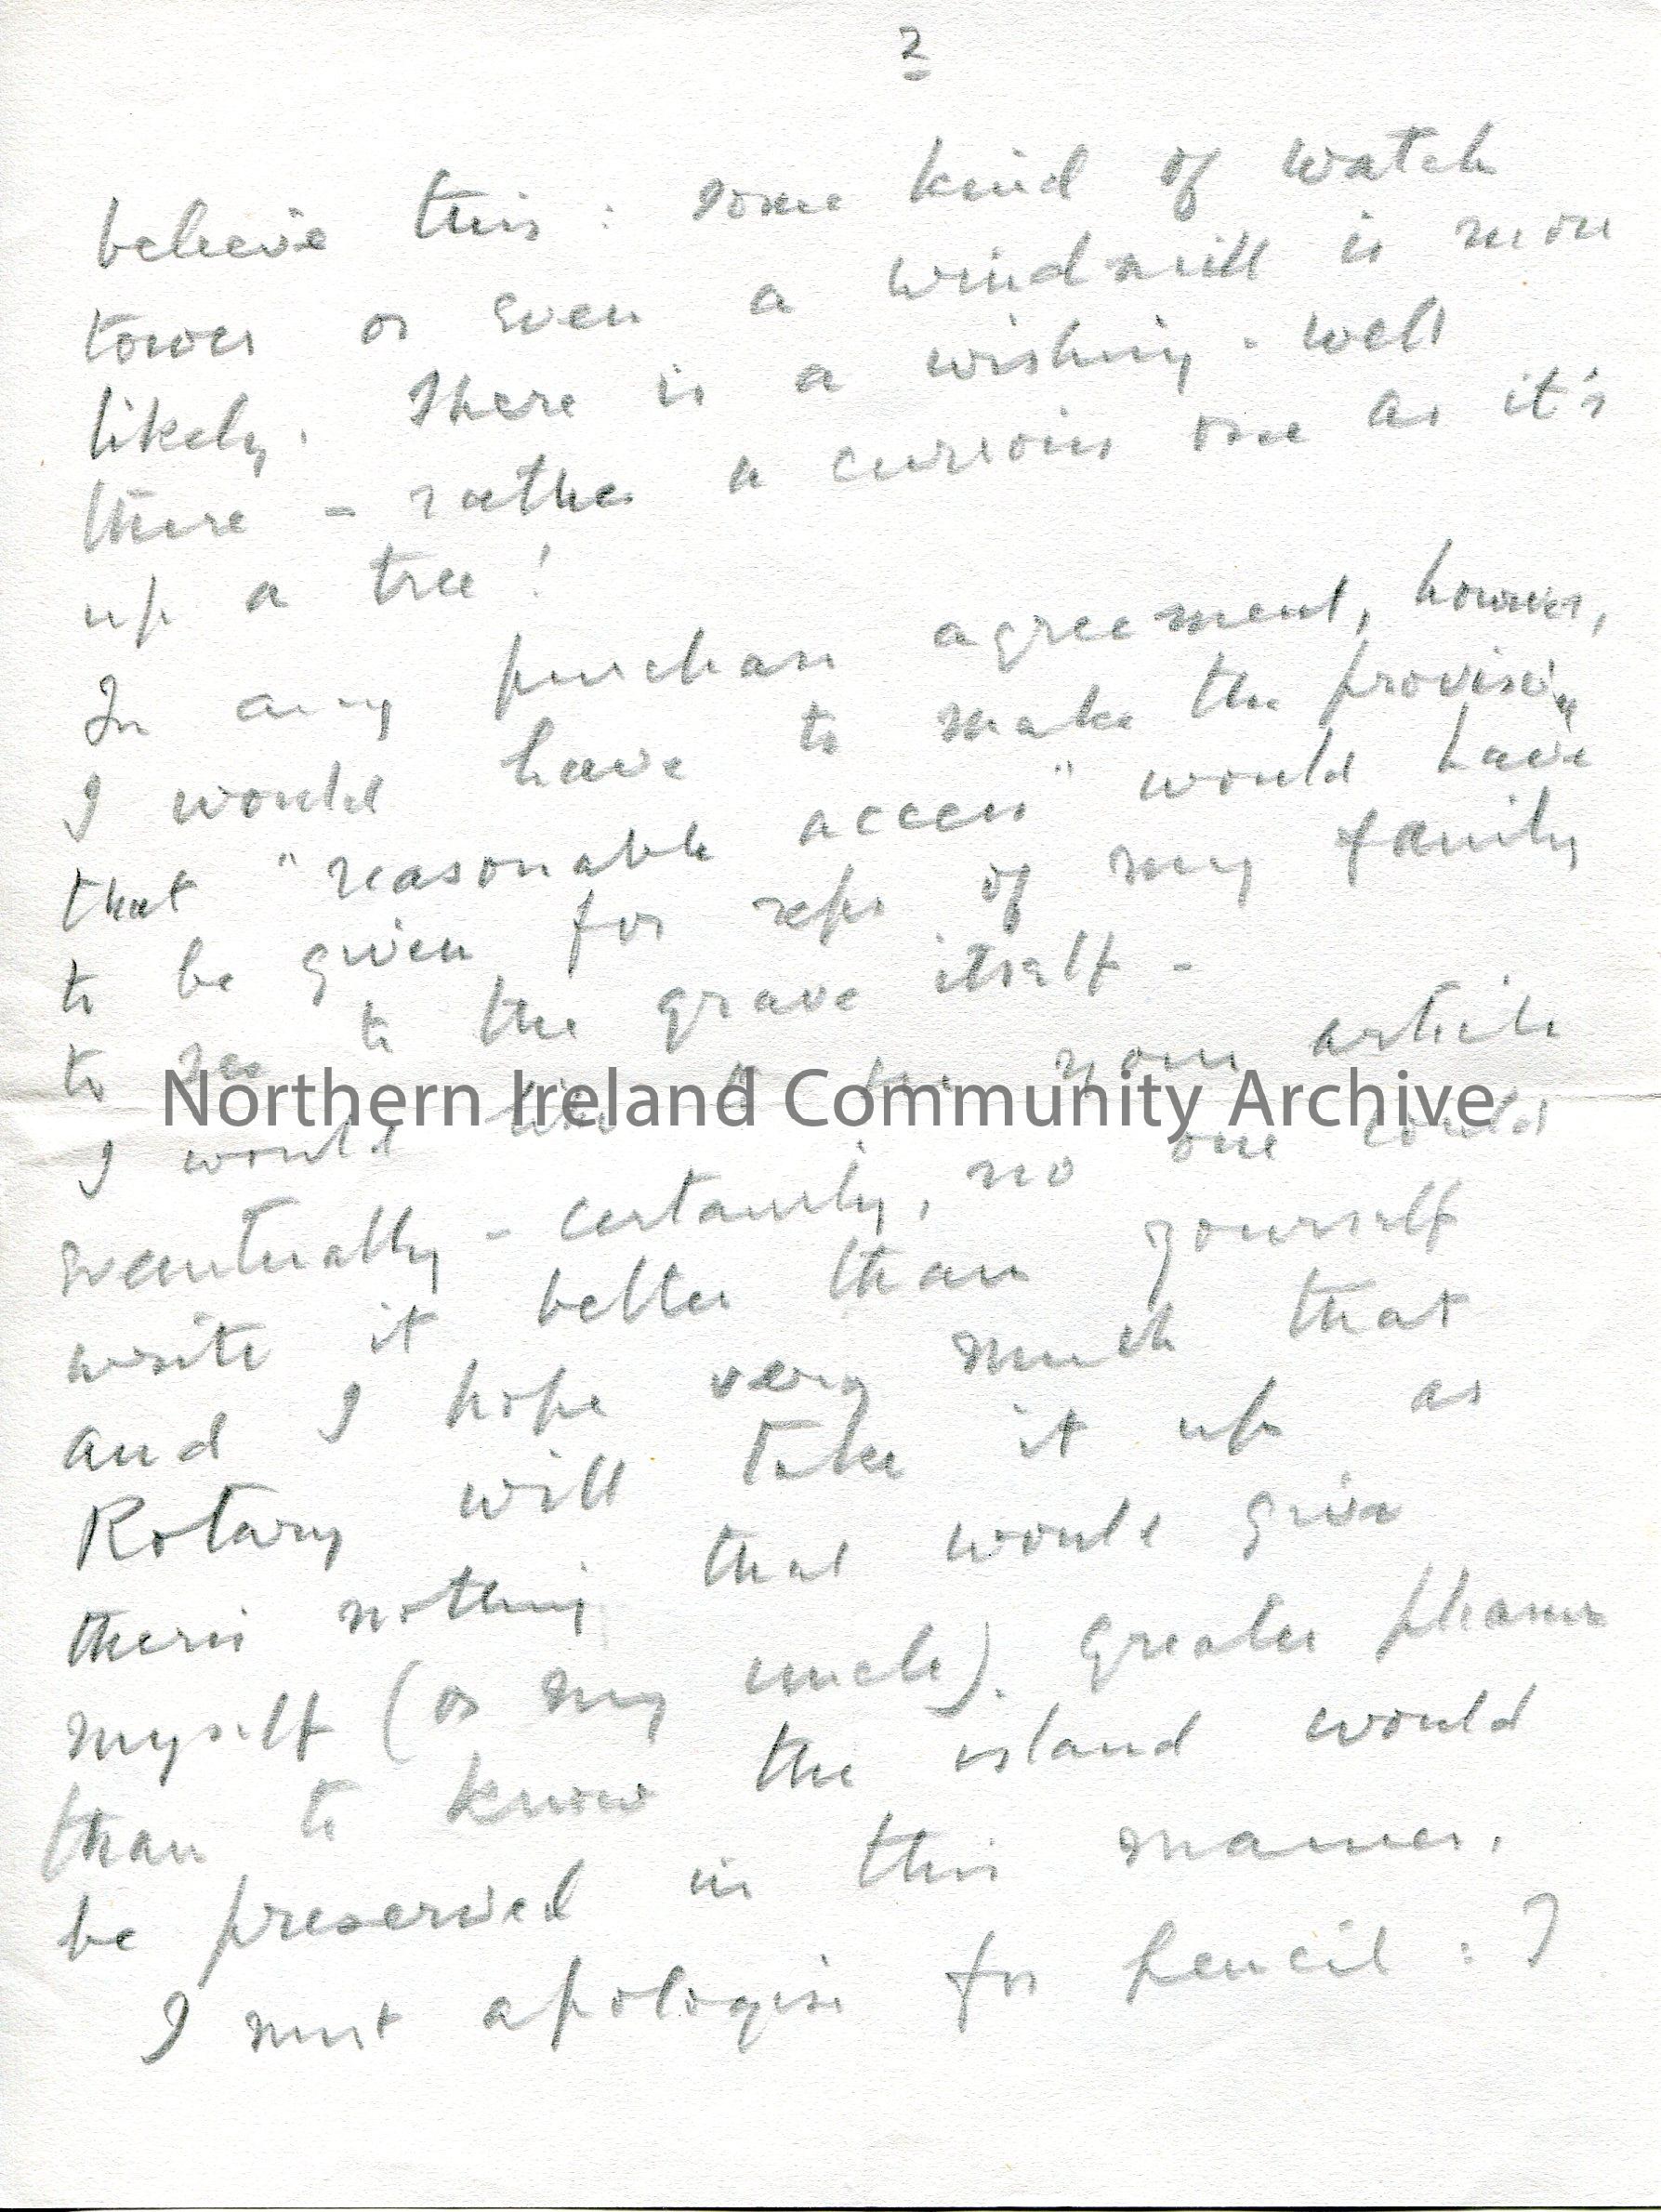 2
believe this: some kind of watch
tower or even a windmill is more
likely. There is a wishing-well
there - rather a curious one as it's
up a tree!
In any purchase agreement, however,
I would have to make the provision
that "reasonable access" would have
to be given for reps of my family
to see to the grave itself -
I would like to see your article
Northern Ireland Community Archive
eventually - certainly, no one could
write it better than yourself
and I hope very much that
Rotary will take it up as
there's nothing that would give
myself (or my uncle). greater pleasure
than to know the island would
be preserved in this manner.
I must apologise for pencil: I